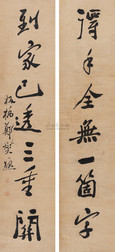 得手全無一箇字
到家已透三重關
板橋鄭燮